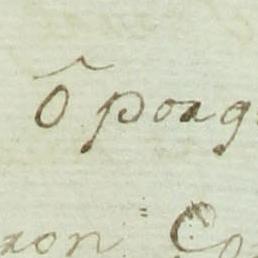 Ô poag
ron Co